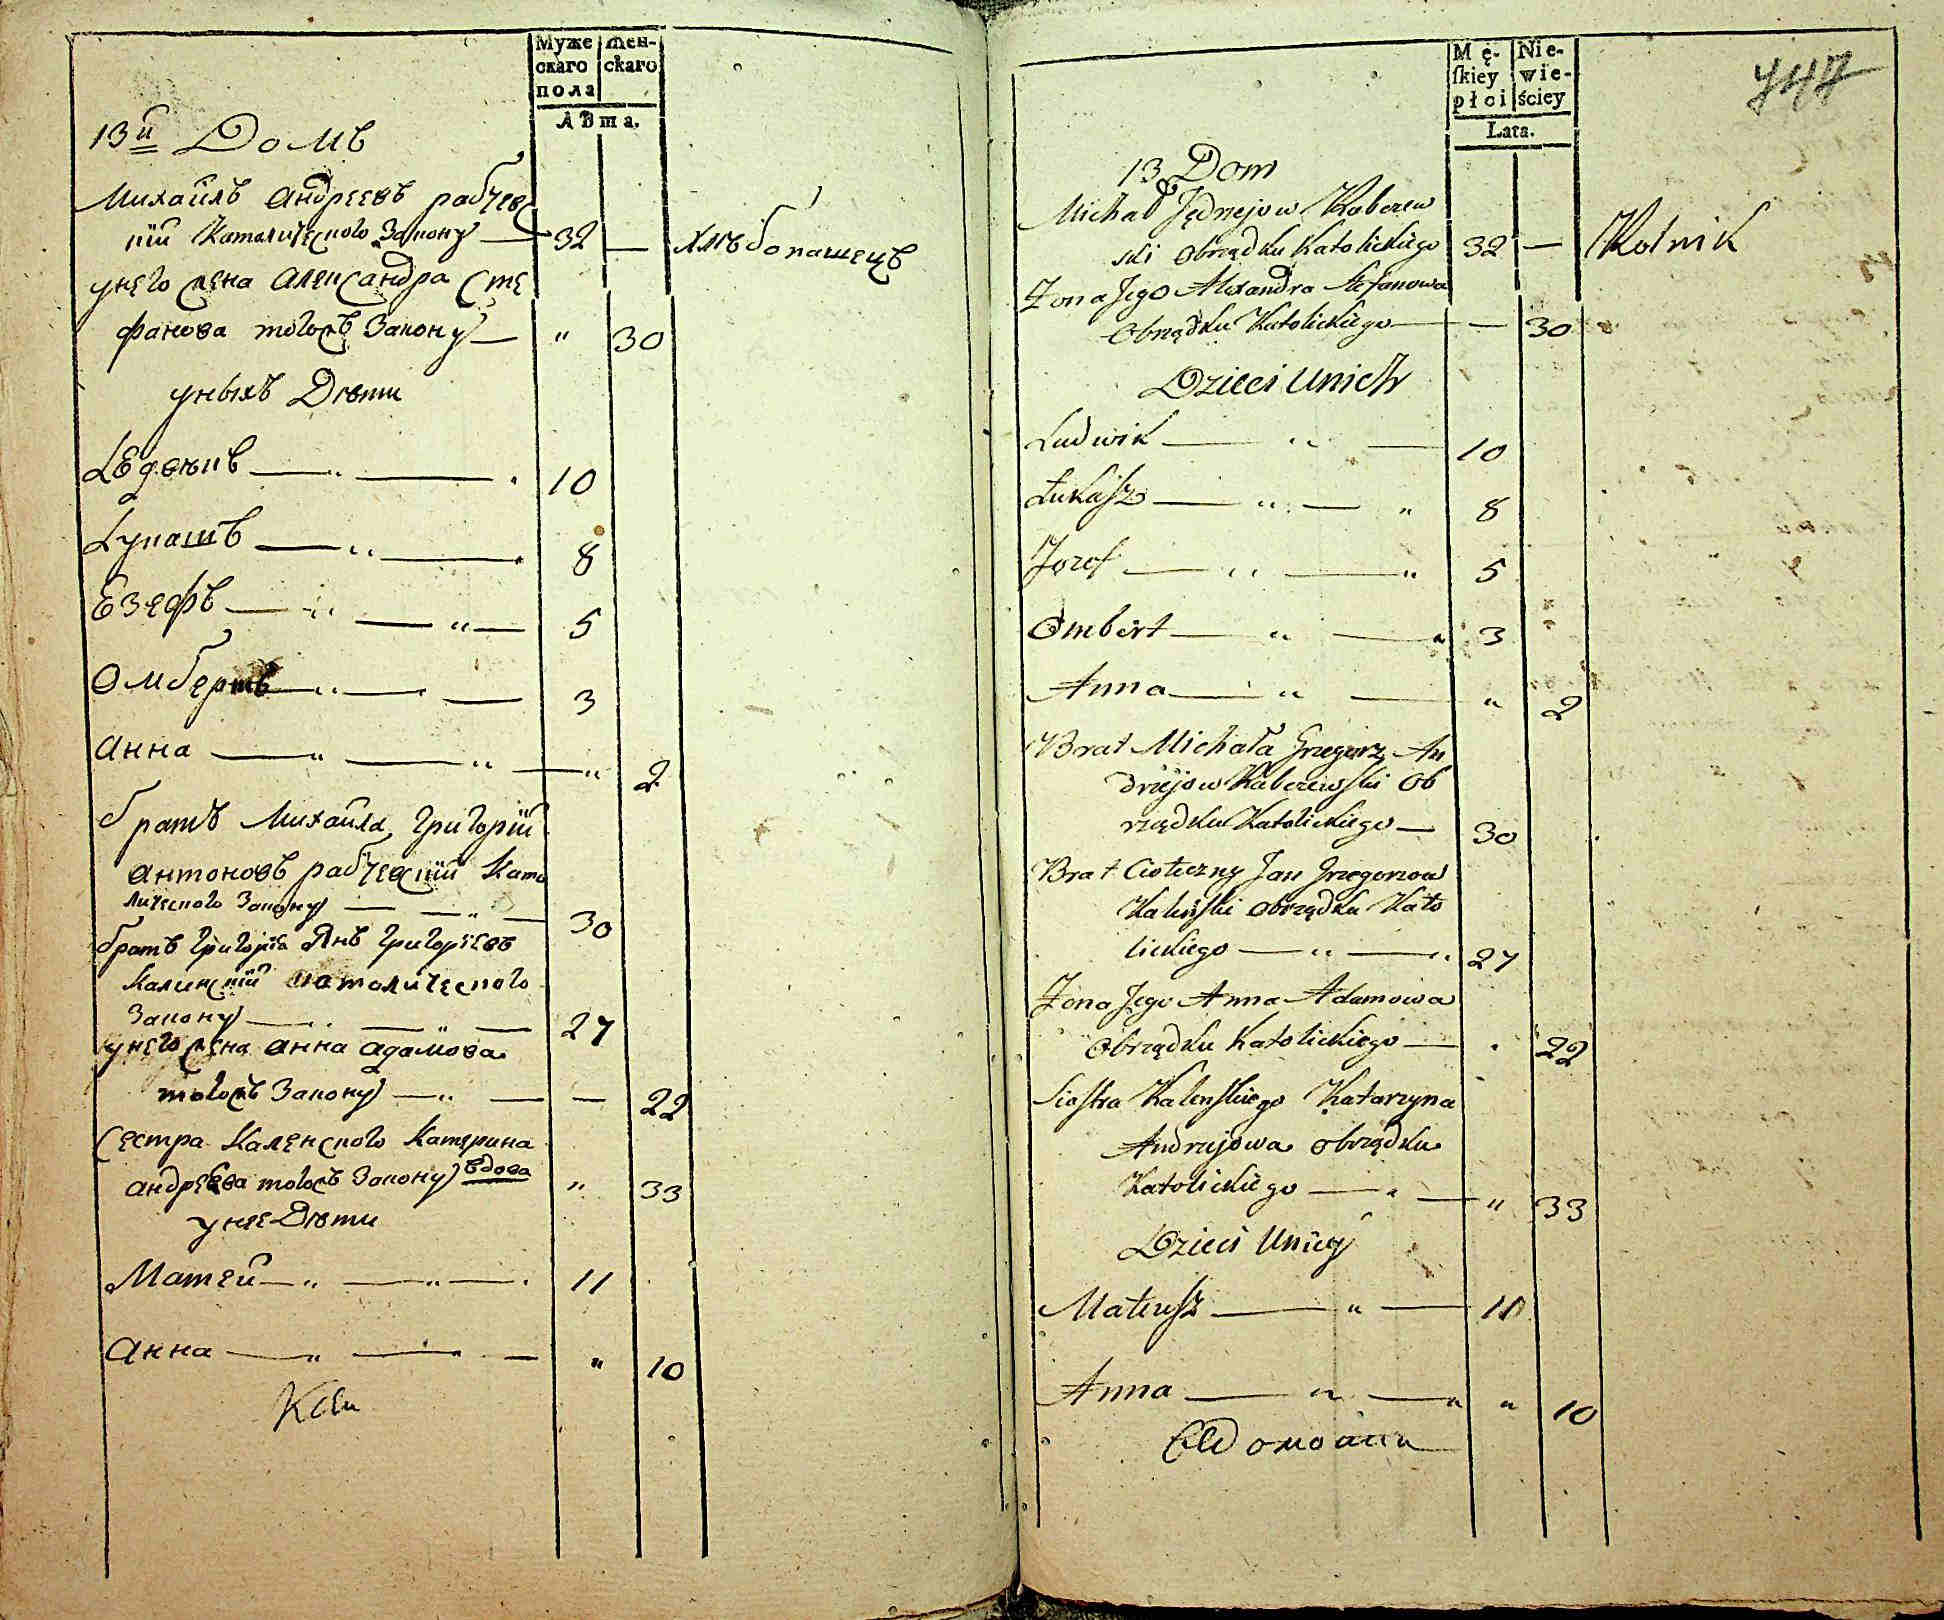 Муже
скаго
пола
Жен-
скаго
Лѣта.
13й Домъ
Михаилъ Андреевъ рабчевс
кїй Католического Закону — 32 —
Хлѣбопашецъ
унего жена Александра Сте
фанова тогожъ Закону — " 30
уныхъ Дѣти
10
Лукашъ — " — 8
Езефъ — " — " — 5
Омбертъ — " — 3
Анна — " — " — " 2
братъ Михаила Григорїй
Антоновъ рабчевскїй Като
лического Закону — — " — 30
братъ Григорїя Янъ Григорьевъ
Калинскїй католического
Закону — " — " — 27
унего жена Анна Адамова
тогожъ Закону — " — — 22
Сестра Каленского Катерина
Андреева тогожъ Закону вдова " 33
унее Дѣти
Матей — " — " — 11
Анна — " — " — " 10
Mę-
ſkiey
płci
Nie-
wie-
ściey
Lata.
747
13 Dom
Michał Jędrzejow Rabczew
ski Obrządku Katolickiego 32 — Rolnik
Żona Jego Alexandra Stefanowa
Obrządku Katolickiego — — 30
Dzieci Unich
Ludwik — " — 10
Łukaſz — " — " 8
Jozef — " — " 5
Ombert — " — " 3
Anna — " — " 2
Brat Michała Grzegorz An
drzejow Rabczewſki Ob
rządku Katolickiego — 30
Brat Cioteczny Jan Grzegorzow
Kalinſki Obrządku Kato
lickiego — " — " 27
Żona Jego Anna Adamowa
Obrządku Katolickiego — " 22
Sioſtra Kalenſkiego Katarzyna
Andrzejowa Obrządku
Katolickiego — " — " 33
Dzieci Uniey
Mateuſz — " — 11
Anna — " — " " 10